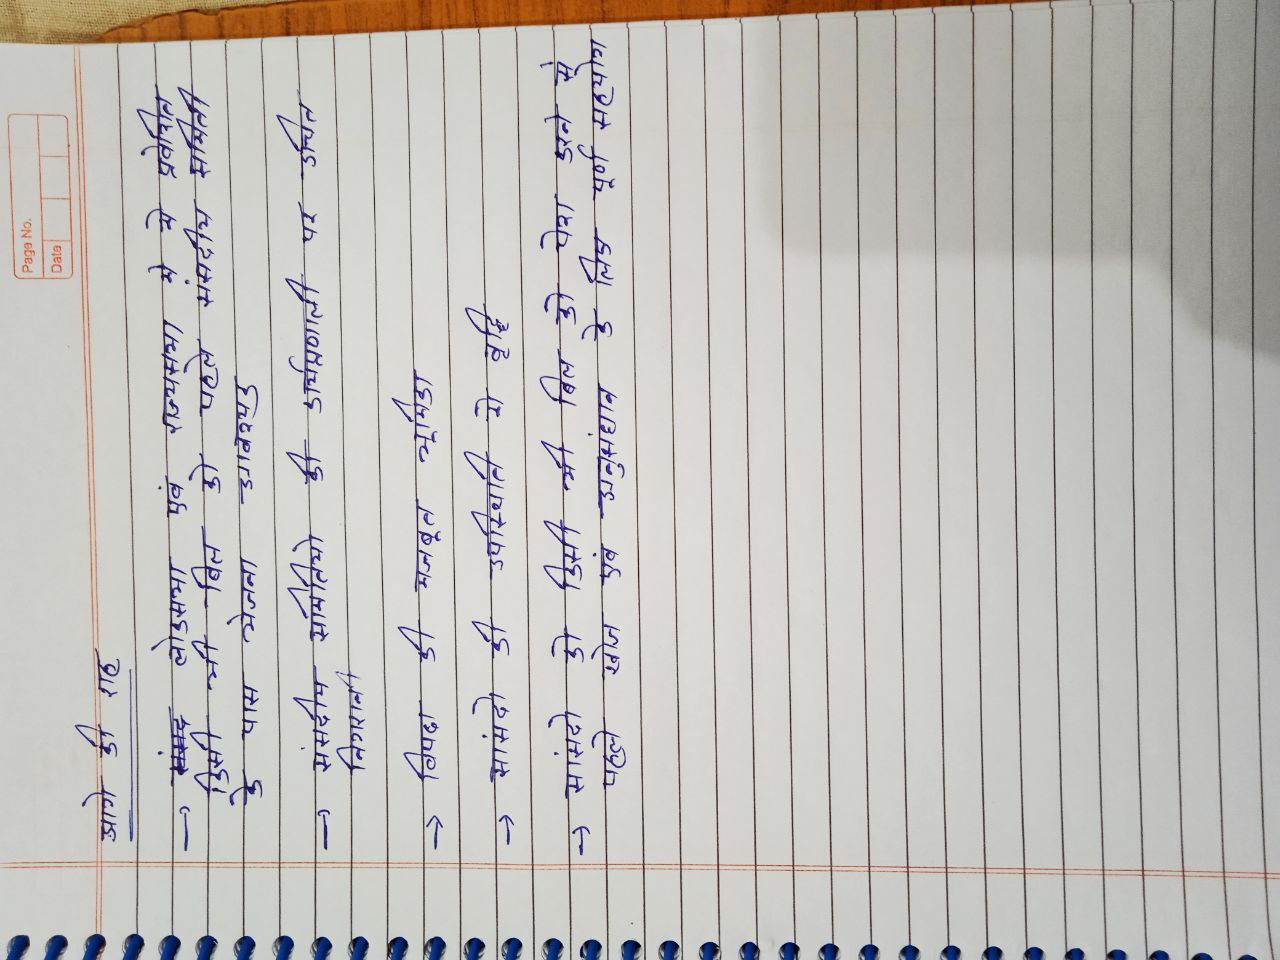 Page No.
Date
आगे की राह
→ लोकसभा एवं राज्यसभा में से प्रेषित
किसी भी बिल को पहले संसदीय समिती
के पास भेजना आवश्यक
→ संसदीय समितियो की कार्यप्रणाली पर उचित
निगरानी
→ विपक्ष की मजबूत भूमिका
→ सांसदो की उपस्थिति मे वृद्धि
→ सांसदो को किसी भी बिल को पेश करने से
पहले खोज एवं अनुसंधान के लिए पूर्ण सहयोग